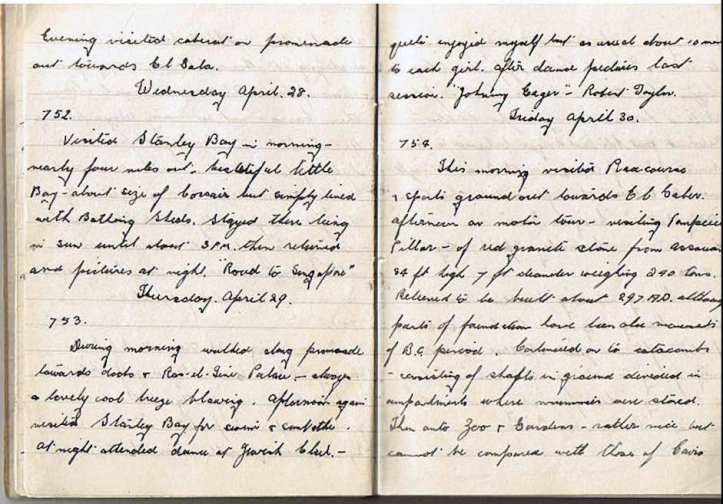 Evening visited cabaret on promenade
out towards El Gala.
Wednesday April. 28.
752.
Visited Stanley Bay in morning -
nearly four miles out, beautiful little
Bay - about size of but simply lined
with Bathing Sheds. Stayed there lying
in sun until about 3 P.M. then returned
and pictures at night. "Road to Singapore"
Thursday. April. 29.
753.
During morning walked along promenade
towards docks & Ras-el-Tine Palace - always
a lovely cool breeze blowing. Afternoon again
visited Stanley Bay for swim &
At night attended dance at Jewish Club. -
quite enjoyed myself but as usual about 10 men
to each girl. After dance pictures last
session. "Johnny Eager" - Robert Taylor.
Friday April 30.
754.
This morning visited Racecourse
& sports ground out towards El
afternoon on motor tour - visiting
Pillar - of red granite stone from
84 ft high 7 ft diameter weighing 240 tons.
Believed to be built about 297 A.D. although
parts of foundation have been also
of B.C. period. Continued on to catacombs
- consisting of shafts in ground divided in
compartments where mummies were stored.
Then onto Zoo & Gardens - rather nice but
cannot be compared with those of Cairo